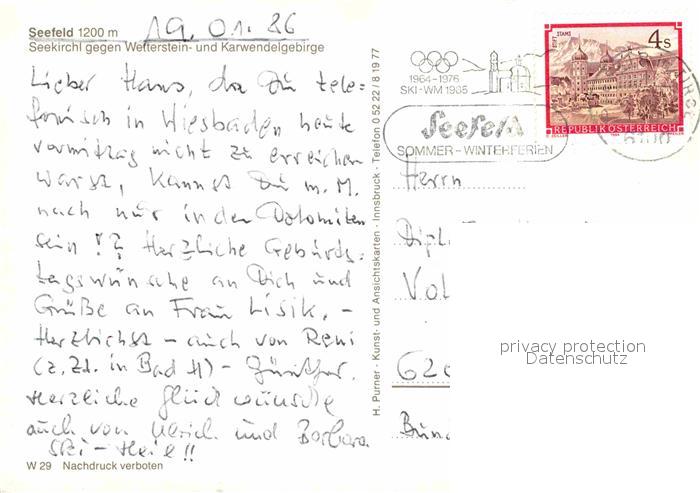 19.01.86
Seefeld 1200 m
Seekirchl gegen Wetterstein- und Karwendelgebirge
Lieber Hans, da Du tele=
fonisch in Wiesbaden heute
vormittag nicht zu erreichen
warst, kannst Du m. M.
nach nur in den Dolomiten
sein !? Herzliche Geburts=
tagswünsche an Dich und
Grüße an Frau Lisik. –
Herzlichst – auch von Reni
(z. Zt. in Bad H) – Günther.
Herzliche Glückwünsche
auch von Ulrich und Barbara
Ski – Heil !!
W 29 Nachdruck verboten
H. Purner · Kunst- und Ansichtskarten · Innsbruck · Telefon 0 52 22 / 8 19 77
1964-1976
SKI-WM 1985
Seefeld
SOMMER-WINTERFERIEN
STIFT STAMS
4 S
REPUBLIK ÖSTERREICH
6100
Herrn
Dipl.
Vol
620
Bun
privacy protection
Datenschutz